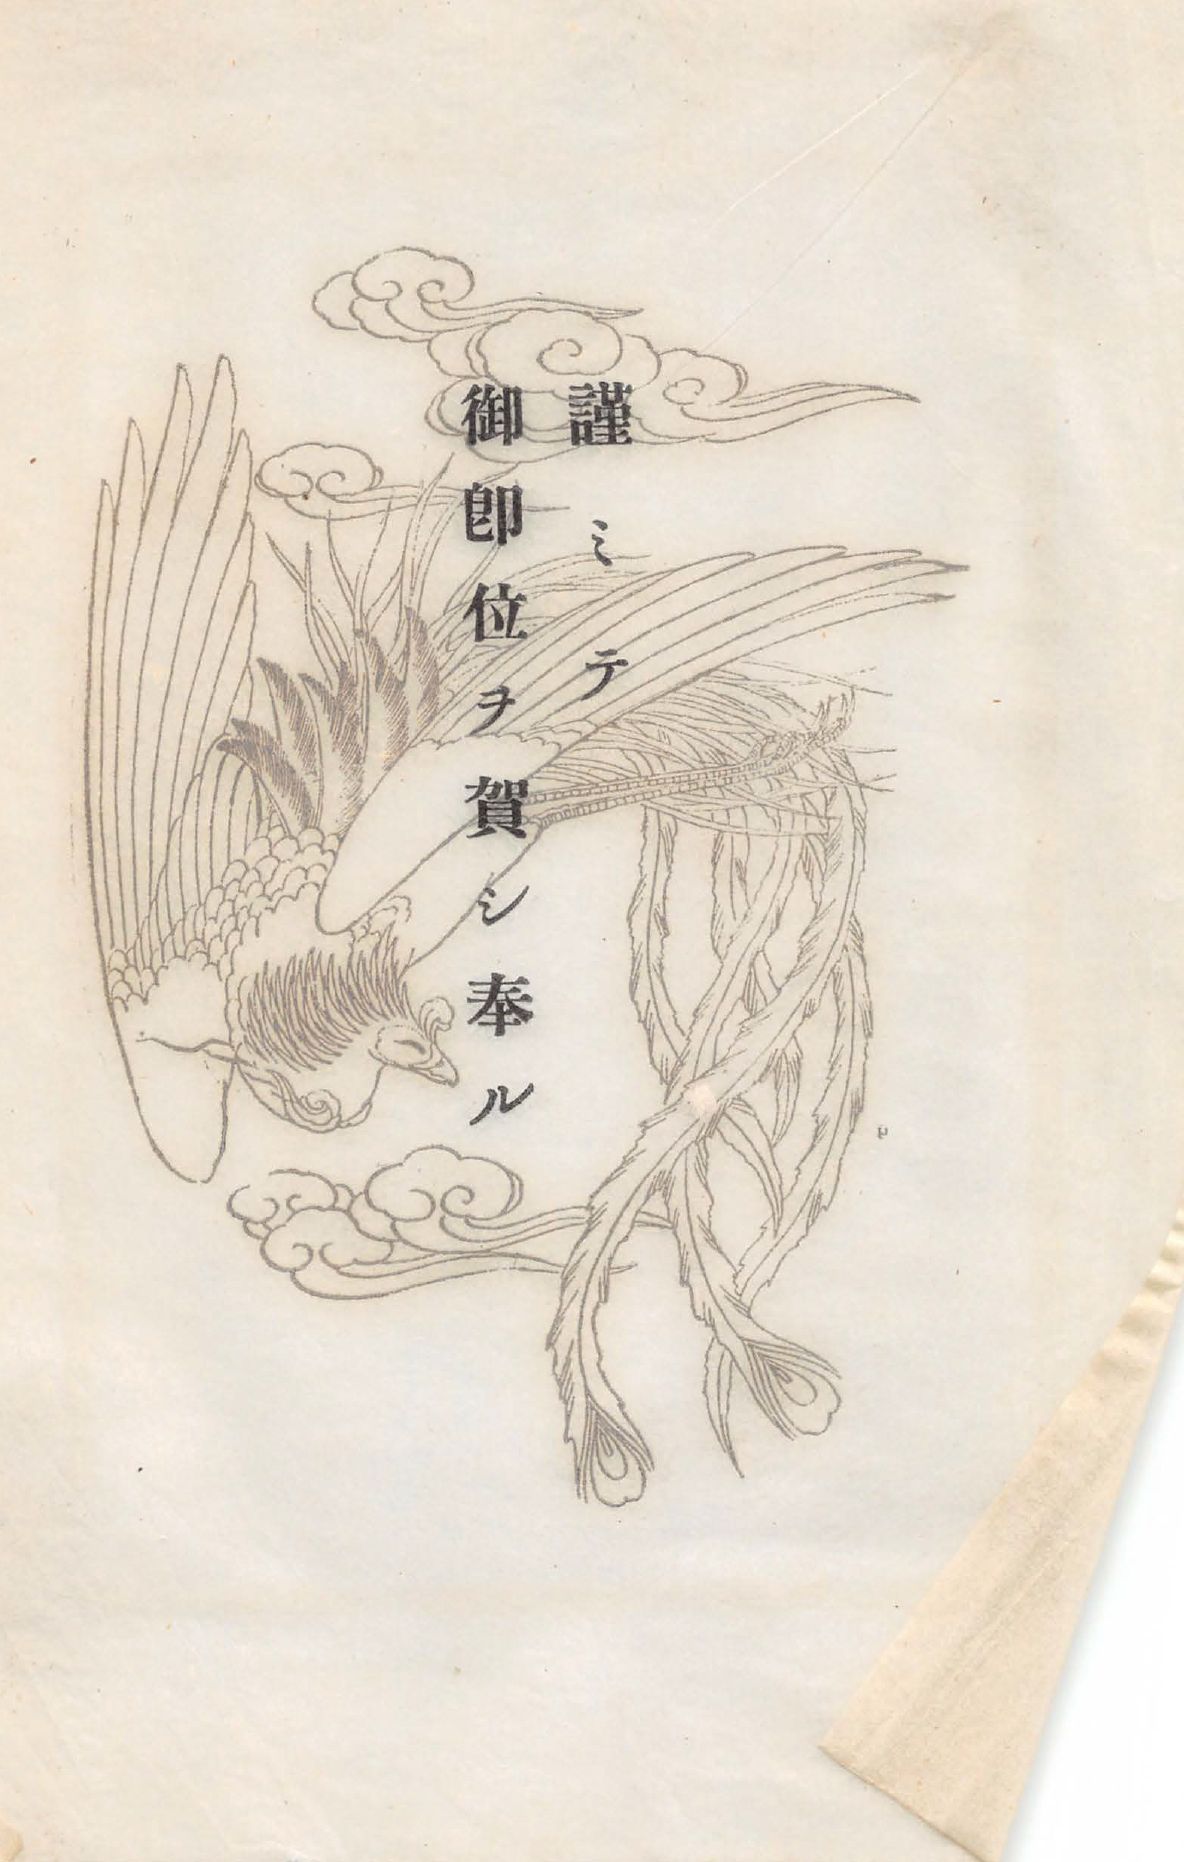 謹ミテ
御即位ヲ賀シ奉ル